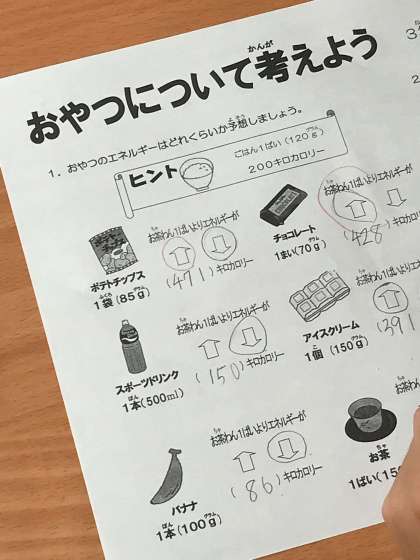 おやつについて考えよう
かんが
1. おやつのエネルギーはどれくらいか予想しましょう。
よそう
ヒント
ごはん1ぱい(120g)
グラム
200キロカロリー
お茶わん1ぱいよりエネルギーが
(471)キロカロリー
ポテトチップス
1袋(85g)
お茶わん1ぱいよりエネルギーが
(428)キロカロリー
チョコレート
1まい(70g)
お茶わん1ぱいよりエネルギーが
(150)キロカロリー
スポーツドリンク
1本(500ml)
お茶わん1ぱいよりエネルギーが
(391
アイスクリーム
1個(150g)
お茶わん1ぱいよりエネルギーが
(86)キロカロリー
バナナ
1本(100g)
お茶
1ぱい(15